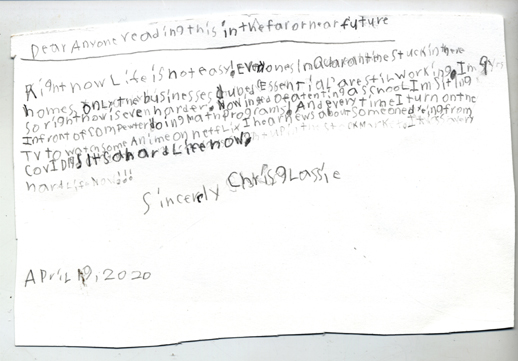 Dear Anyone reading this in the far or near future
Right now Life is not easy. Everyones in Quarantine stuck in there
homes. only the businesses dubed Essential are still working. Im 9
so right now is even harder. Now insted of atenting asschool Im Siting
Infront of computer doing math programs. And every time I turn on the
TV to watch some Anime on netflix I hear news about someone dieing from
COVID19 its a hard Life now.
hard
Sincerely Chris glassie
April 19, 2020